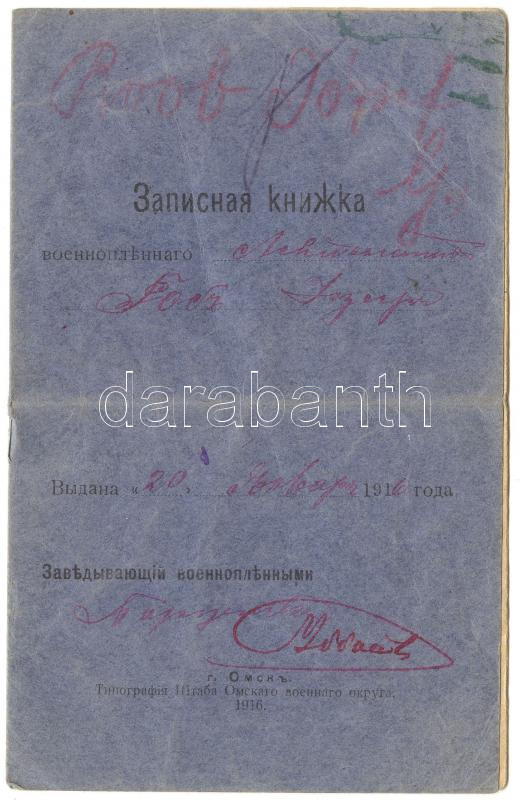 Roob József
Записная книжка
военноплѣннаго Лейтенантъ
Робъ
darabanth
Выдана «20» Января 1916 года.
Завѣдывающій военноплѣнными
г. Омскъ.
Типографія Штаба Омскаго военнаго округа.
1916.